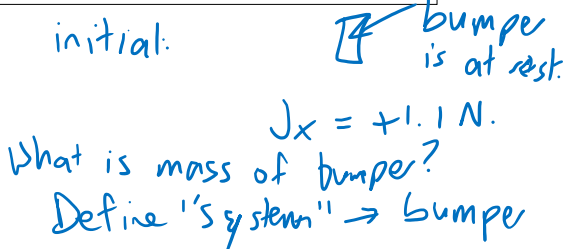 initial:
bumpe
is at rest.
Jx = +1.1 N.
What is mass of bumpe?
Define "system" → bumpe